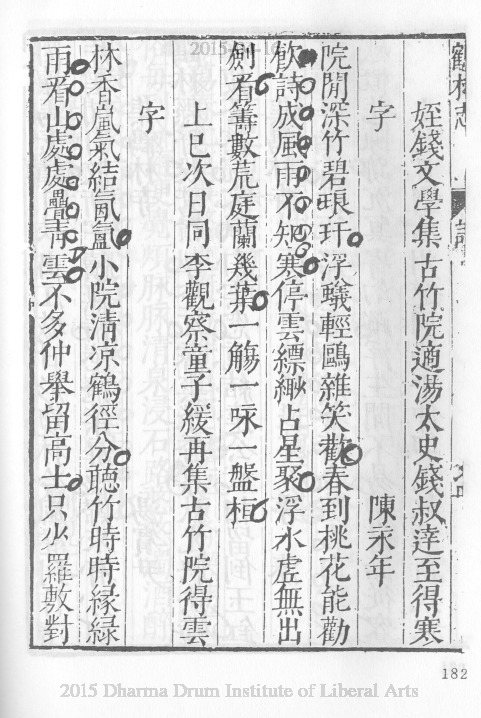 鶴林志
姪錢文學集古竹院適湯太史錢叔達至得寒
字
陳永年
院閒深竹碧琅玕浮蟻輕鷗雜笑歡春到桃花能勸
飲詩成風雨不知寒停雲縹緲占星聚浮水虛無出
劍看籌數荒庭蘭幾葉一觴一咏一盤桓
上巳次日同李觀察童子緩再集古竹院得雲
字
林香嵐氣結氤氳小院清凉鶴徑分聴竹時時緣綠
雨看山處處疊靑雲不多仲舉留高士只少羅敷對
182
2015 Dharma Drum Institute of Liberal Arts